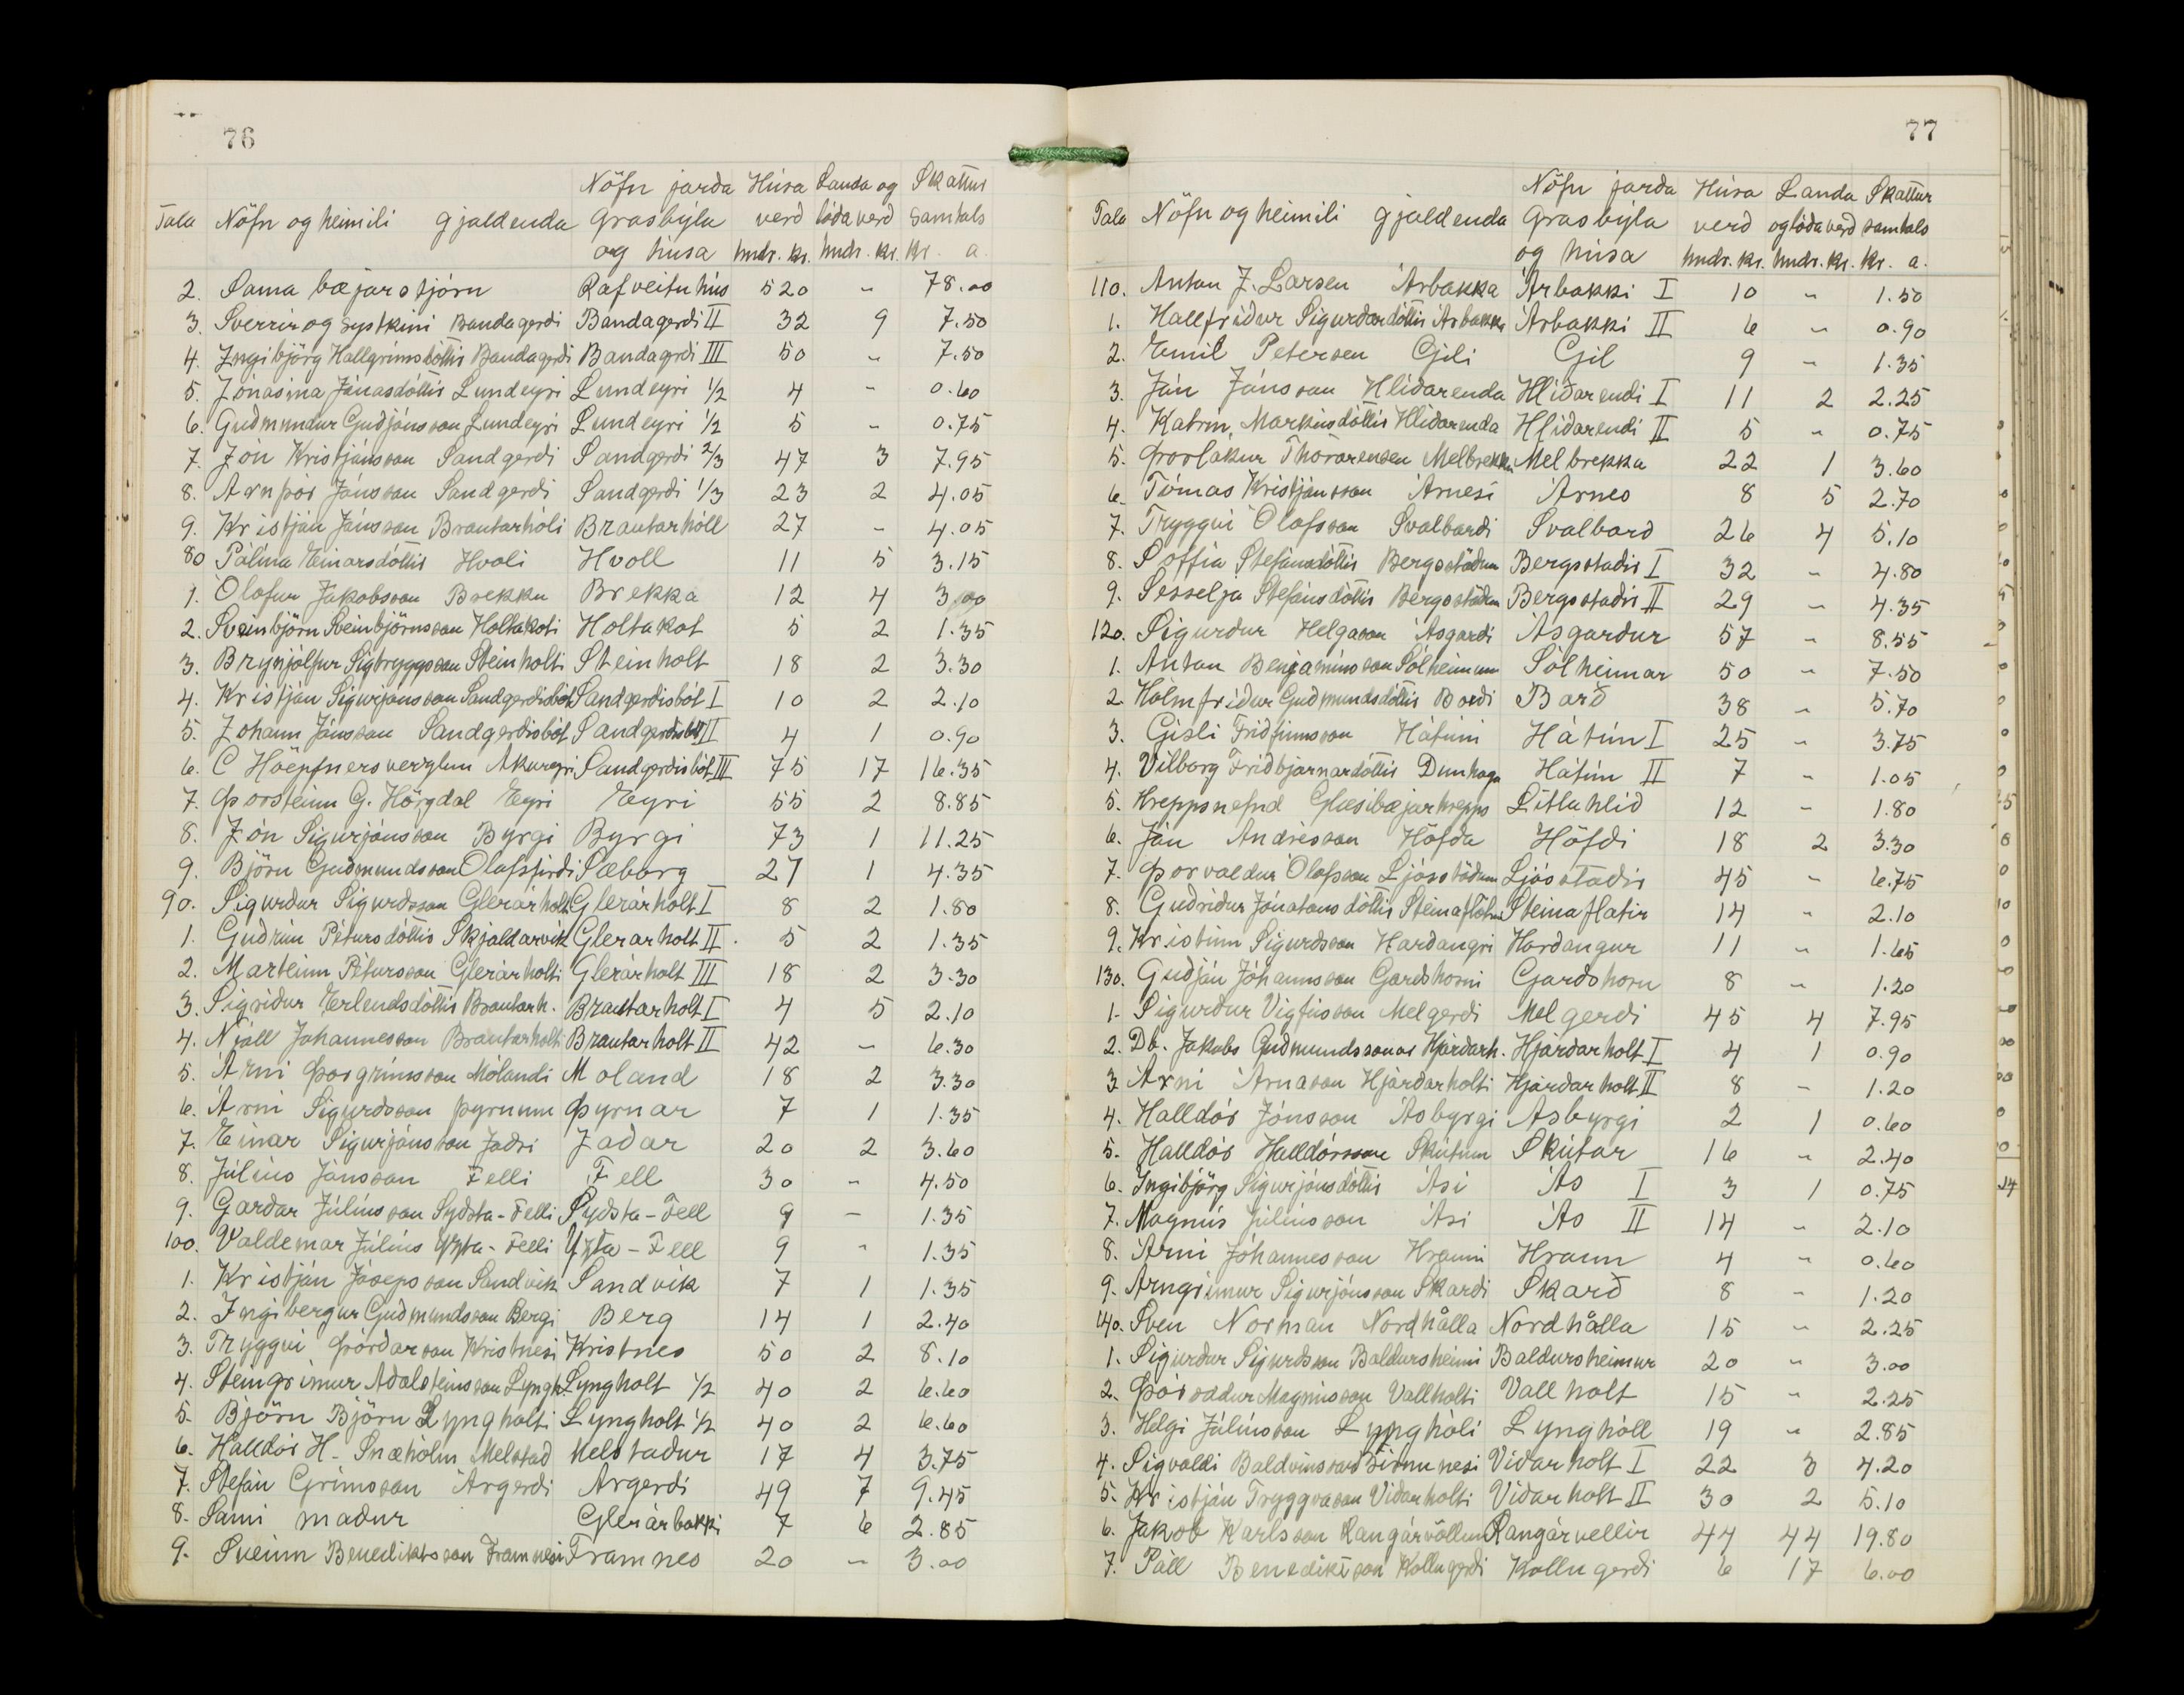 76
Nöfn jarda Húsa Landa og Skattur
Tala Nöfn og heimili gjaldenda Grasbýla verd lóda verd samtals
og húsa hndr. kr. hndr. kr. kr. a.
2. Sama bæjarstjórn Rafveituhús 520 - 78.00
3. Sverrir og systkini Bandagerdi Bandagerdi II 32 9 7.50
4. Ingibjörg Hallgrímsdóttir Bandagerdi Bandagerdi III 50 - 7.50
5. Jónasína Jónasdóttir Lundeyri Lundeyri 1/2 4 - 0.60
6. Gudmundur Gudjónsson Lundeyri Lundeyri 1/2 5 - 0.75
7. Jón Kristjánsson Sandgerdi Sandgerdi 2/3 47 3 7.95
8. Arnþór Jónsson Sandgerdi Sandgerdi 1/3 23 2 4.05
9. Kristján Jónsson Brautarhóli Brautarhóll 27 - 4.05
80 Pálína Einarsdóttir Hvoli Hvoll 11 5 3.15
1. Ólafur Jakobsson Brekku Brekka 12 4 3.00
2. Sveinbjörn Sveinbjörnsson Holtakoti Holtakot 5 2 1.35
3. Brynjólfur Sigtryggsson Steinholti Steinholt 18 2 3.30
4. Kristján Sigurjónsson Sandgerdisbót Sandgerdisbót I 10 2 2.10
5. Jóhann Jónsson Sandgerdisbót Sandgerdisbót II 4 1 0.90
6. C Höepfnersverzlun Akureyri Sandgerdisbót III 75 17 16.35
7. Þorsteinn G. Hörgdal Eyri Eyri 55 2 8.85
8. Jón Sigurjónsson Byrgi Byrgi 73 1 11.25
9. Björn Gudmundsson Ólafsfirdi Sæborg 27 1 4.35
90. Sigurdur Sigurdsson Glerárholt Glerárholt I 8 2 1.80
1. Gudrún Pétursdóttir Skjaldarvík Glerarholt II. 5 2 1.35
2. Marteinn Pétursson Glerárholti Glerárholt III 18 2 3.30
3. Sigridur Erlendsdóttir Brautarh. Brautarholt I 4 5 2.10
4. Njáll Jóhannesson Brautarholti Brautarholt II 42 - 6.30
5. Árni Þorgrímsson Mólandi Moland 18 2 3.30
6. Árni Sigurdsson Þyrnum Þyrnar 7 1 1.35
7. Einar Sigurjónsson Jadri Jadar 20 2 3.60
8. Júlíus Jónsson Felli Fell 30 - 4.50
9. Gardar Júlíusson Sydsta-Felli Sydsta-Fell 9 - 1.35
100. Valdemar Júlíus Yzta-Felli Yzta-Fell 9 - 1.35
1. Kristján Jósepsson Sandvík Sandvík 7 1 1.35
2. Ingibergur Gudmundsson Bergi Berg 14 1 2.40
3. Tryggvi Þórdarson Kristnesi Kristnes 50 2 8.10
4. Steingrímur Adalsteinsson Lyngh. Lyngholt 1/2 40 2 6.60
5. Björn Björn Lyngholti Lyngholt 1/2 40 2 6.60
6. Halldór H. Snæhólm Melstad Melstadur 17 4 3.75
7. Stefán Grímsson Árgerdi Árgerdi 49 7 9.45
8. Sami madur Glerárbakki 7 6 2.85
9. Sveinn Benediktsson Framnesi Framnes 20 - 3.00
77
Nöfn jarda Húsa Landa Skattur
Tala Nöfn og heimili gjaldenda Grasbýla verd og lóda verd samtals
og húsa hndr. kr. hndr. kr. kr. a.
110. Anton J. Larsen Árbakka Árbakki I 10 - 1.50
1. Hallfridur Sigurdardóttir Árbakka Árbakki II 6 - 0.90
2. Emil Petersen Gili Gil 9 - 1.35
3. Ján Jónsson Hlídarenda Hlídarendi I 11 2 2.25
4. Katrín Markúsdóttir Hlídarenda Hlídarendi II 5 - 0.75
5. Þorlákur Thórarensen Melbrekku Melbrekka 22 1 3.60
6. Tómas Kristjánsson Árnesi Árnes 8 5 2.70
7. Tryggvi Ólafsson Svalbardi Svalbard 26 4 5.10
8. Soffía Stefánsdóttir Bergsstödum Bergsstadir I 32 - 4.80
9. Sesselja Stefánsdóttir Bergsstödum Bergsstadir II 29 - 4.35
120. Sigurdur Helgason Ásgardi Ásgardur 57 - 8.55
1. Anton Benjamínsson Sólheimum Sólheimar 50 - 7.50
2 Hólmfridur Gudmundsdóttir Bardi Barð 38 - 5.70
3. Gísli Fridfinnsson Hátúni Hátún I 25 - 3.75
4. Vilborg Fridbjarnardóttir Dunhaga Hátún II 7 - 1.05
5. Hreppsnefnd Glæsibæjarhrepps Litlahlid 12 - 1.80
6. Ján Andrésson Höfda Höfdi 18 2 3.30
7. Þorvaldur Ólafsson Ljósstödum Ljósstadir 45 - 6.75
8. Gudridur Jónatansdóttir Steinaflötum Steinaflatir 14 - 2.10
9. Kristinn Sigurdsson Hardangri Hardangur 11 - 1.65
130. Gudján Jóhannsson Gardshorni Gardshorn 8 - 1.20
1. Sigurdur Vigfússon Melgerdi Melgerdi 45 4 7.95
2. Db. Jakobs Gudmundssonar Hjardarh. Hjardarholt I 4 1 0.90
3 Árni Árnason Hjardarholti Hjardarholt II 8 - 1.20
4. Halldór Jónsson Ásbyrgi Ásbyrgi 2 1 0.60
5. Halldór Halldórsson Skútum Skútar 16 - 2.40
6. Ingibjörg Sigurjónsdóttir Ási Ás I 3 1 0.75
7. Magnús Júlíusson Ási Ás II 14 - 2.10
8. Árni Jóhannesson Hrauni Hraun 4 - 0.60
9. Arngrímur Sigurjónsson Skardi Skarð 8 - 1.20
140. Sven Norman Nordhålla Nordhålla 15 - 2.25
1. Sigurdur Sigurdsson Baldursheimi Baldursheimur 20 - 3.00
2. Þóroddur Magnússon Vallholti Vallholt 15 - 2.25
3. Helgi Júlíusson Lynghóli Lynghóll 19 - 2.85
4. Sigvaldi Baldvinsson Birnunesi Vidarholt I 22 3 4.20
5. Kristján Tryggvason Vidarholti Vidarholt II 30 2 5.10
6. Jakob Karlsson Rangárvöllum Rangárvellir 44 44 19.80
7. Páll Benediktson Kollugerdi Kollugerdi 6 17 6.00